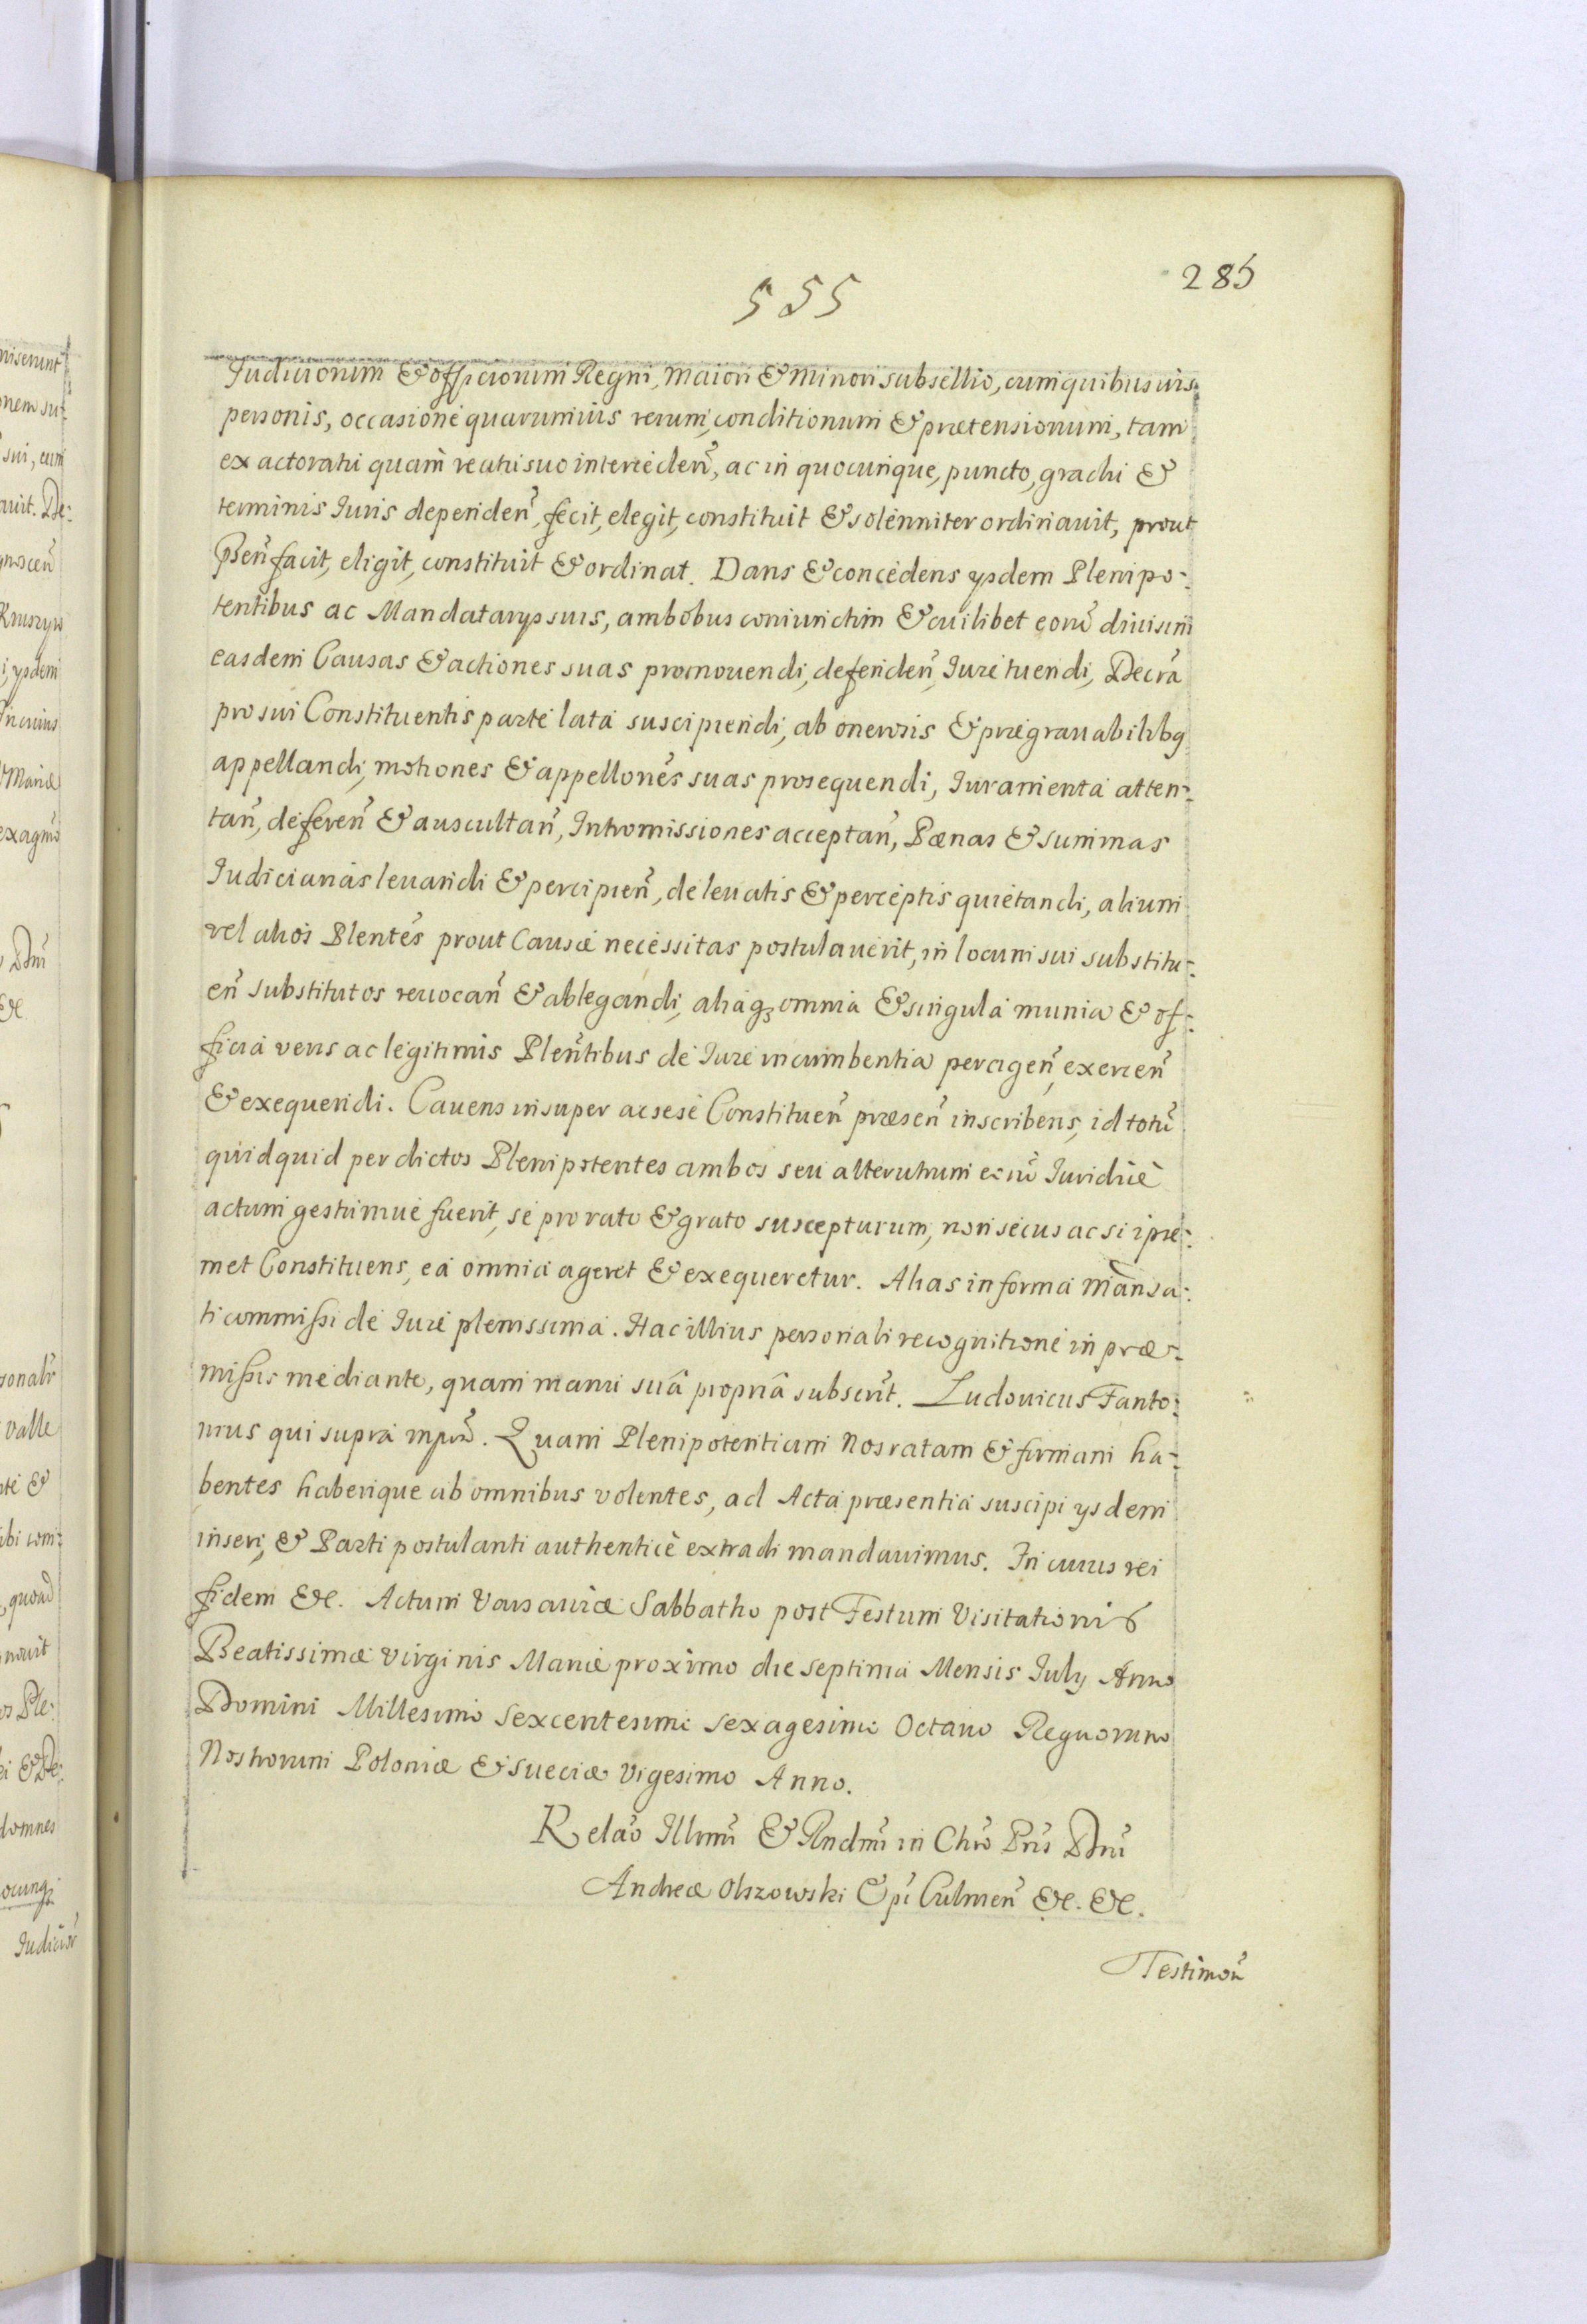 555
285
Iudiciorum & officiorum Regni, Maiori & Minori subsellio, cum quibusvis
personis, occasione quarumvis rerum, conditionum & prætensionum, tam
ex actoratu quam reatu suo interceden̄, ac in quocunque, puncto, gradu &
terminis Iuris dependen̄, fecit, elegit, constituit & solenniter ordinavit, prout
Psen̄ facit, eligit, constituit & ordinat. Dans & concedens ysdem Plenipo-
tentibus ac Mandatarys suis, ambobus coniunctim & cuilibet eorū divisim
easdem Causas & actiones suas promovendi, defenden̄, Iure tuendi, Decrā
pro sui Constituentis parte lata suscipiendi, ab onerosis & prægravabilibq
appellandi, motiones & appellon̄es suas prosequendi, Iuramenta atten-
tan̄, deferen̄ & auscultan̄, Intromissiones acceptan̄, Pænas & summas
Iudiciarias levandi & percipien̄, de levatis & perceptis quietandi, alium
vel alios Plen̄tes prout Causæ necessitas postulaverit, in locum sui substitu-
en̄ substitutos revocan̄ & ablegandi, aliaqꝫ omnia & singula munia & of-
ficia veris ac legitimis Plen̄tibus de Iure incumbentia peragen̄, exercen̄
& exequendi. Cavens insuper ac sese Constituen̄ præsen̄ inscribens, id totū
quidquid per dictos Plenipotentes ambos seu alterutrum eorū Iuridicè
actum gestumve fuerit, se pro rato & grato suscepturum, non secus ac si ipse-
met Constituens, ea omnia ageret & exequeretur. Alias in forma Man̄da-
ti commissi de Iure plenissima. Hac illius personali recognitione in præ-
missis mediante, quam manu suâ propriâ subscrit̄. Ludovicus Fanto-
nius qui supra mpr̄a. Quam Plenipotentiam Nos ratam & firmam ha-
bentes haberique ab omnibus volentes, ad Acta præsentia suscipi ysdem
inseri, & Parti postulanti authenticè extradi mandavimus. In cuius rei
fidem &c. Actum Varsaviæ Sabbatho post Festum Visitationis
Beatissimæ Virginis Mariæ proximo die septima Mensis July Anno
Domini Millesimo Sexcentesimo Sexagesimo Octavo Regnorum
Nostrorum Poloniæ & Sueciæ Vigesimo Anno.
Relāo Illmī & Rndmī in Chrō Pris̄ Dnī
Andreæ Olszowski Epī Culmen̄ &c. &c.
Testimon̄